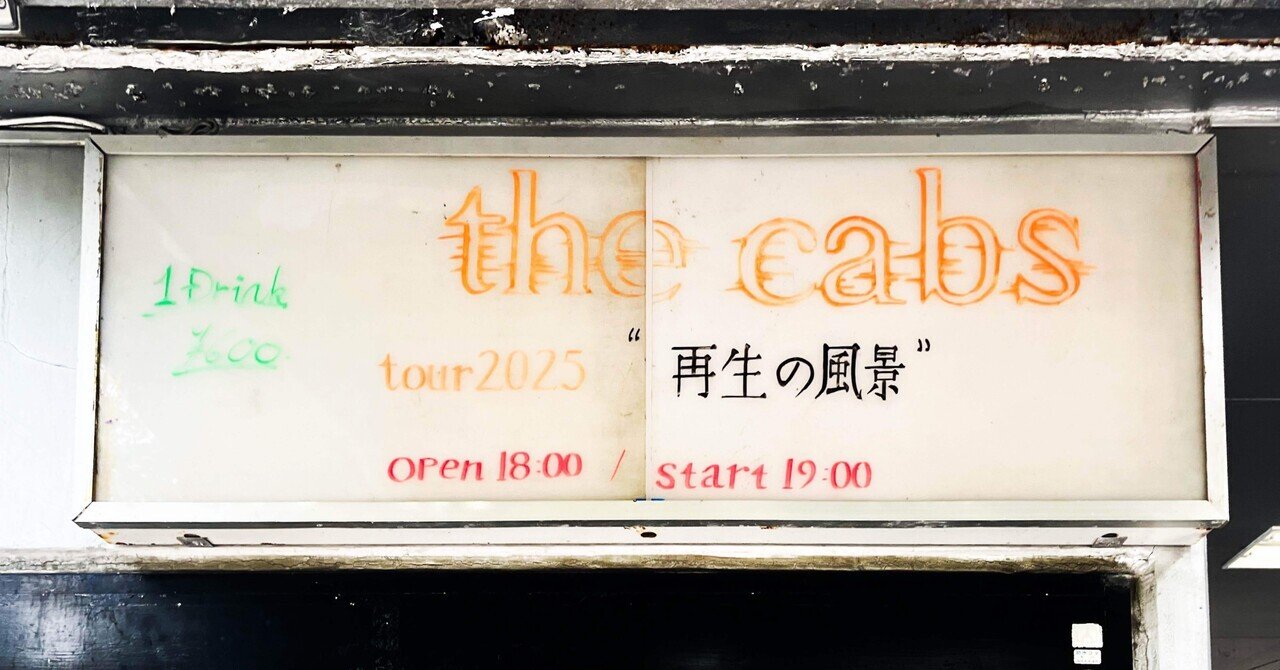 the cabs
1 Drink
¥600
tour2025 “再生の風景”
open 18:00 / start 19:00